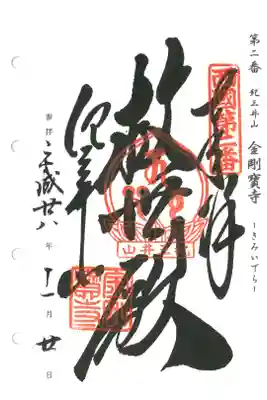 第二番 紀三井山 金剛寶寺
―きみいでら―
奉拝
西國第二番
救世殿
紀三井寺
平成廿八年十一月廿日